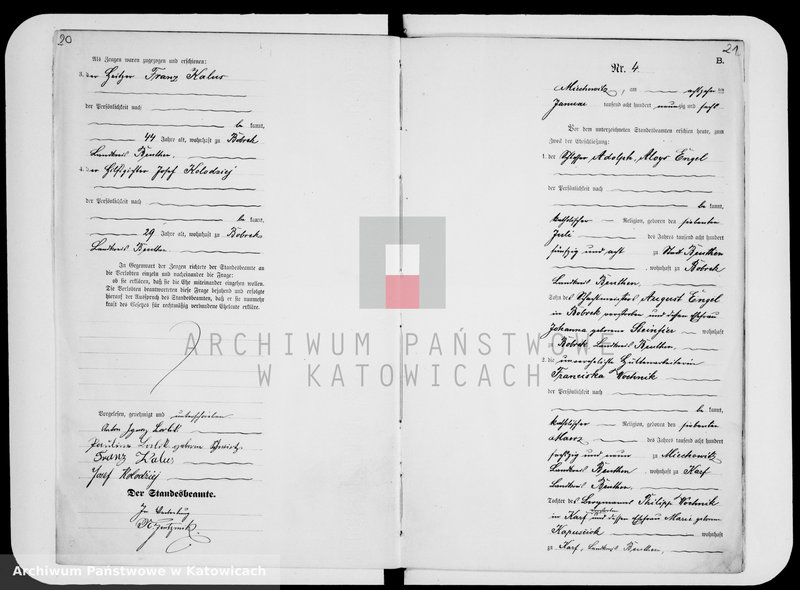 20
Als Zeugen waren zugezogen und erschienen:
3. der Heitzer Franz Kalus
der Persönlichkeit nach
be kannt,
44 Jahre alt, wohnhaft zu Bobrek
Landkreis Beuthen.
4. der Hilfs Josef Kolodziej
der Persönlichkeit nach
be kannt,
29 Jahre alt, wohnhaft zu Bobrek
Landkreis Beuthen.
In Gegenwart der Zeugen richtete der Standesbeamte an
die Verlobten einzeln und nacheinander die Frage:
ob sie erklären, daß sie die Ehe miteinander eingehen wollen.
Die Verlobten beantworteten diese Frage bejahend und erfolgte
hierauf der Ausspruch des Standesbeamten, daß er sie nunmehr
kraft des Gesetzes für rechtmäßig verbundene Eheleute erkläre.
Vorgelesen, genehmigt und unterschrieben
Anton Ignaz
Pauline geborene
Franz Kalus
Josef Kolodziej
Der Standesbeamte.
In Vertretung
21
B.
Nr. 4
Miechowitz, am achtzehnten
Januar tausend acht hundert neunzig und sechs
Vor dem unterzeichneten Standesbeamten erschien heute, zum
Zweck der Eheschließung:
1. der Schlosser Adolph, Aloys Engel
der Persönlichkeit nach
be kannt,
katholischer Religion, geboren den siebenten
Juli des Jahres tausend acht hundert
fünfzig und acht zu Stadt Beuthen
, wohnhaft zu Bobrek
Landkreis Beuthen.
Sohn des Schachtmeisters August Engel
in Bobrek verstorben und dessen Ehefrau
Johanna geborene wohnhaft
zu Bobrek Landkreis Beuthen.
2. die unverehelichte Hüttenarbeiterin
Franciska Wochnik
der Persönlichkeit nach
be kannt,
katholischer Religion, geboren den siebenten
Maerz des Jahres tausend acht hundert
sechszig und neun zu Miechowitz
Landkreis Beuthen, wohnhaft zu Karf
Landkreis Beuthen.
Tochter des Bergmanns Philipp Wochnik
in Karf verstorben und dessen Ehefrau Marie geborene
Kapusciok wohnhaft
zu Karf, Landkreis Beuthen.
ARCHIWUM PAŃSTWOWE
W KATOWICACH
Archiwum Państwowe w Katowicach